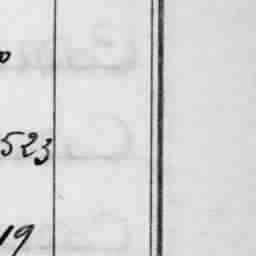 523
19